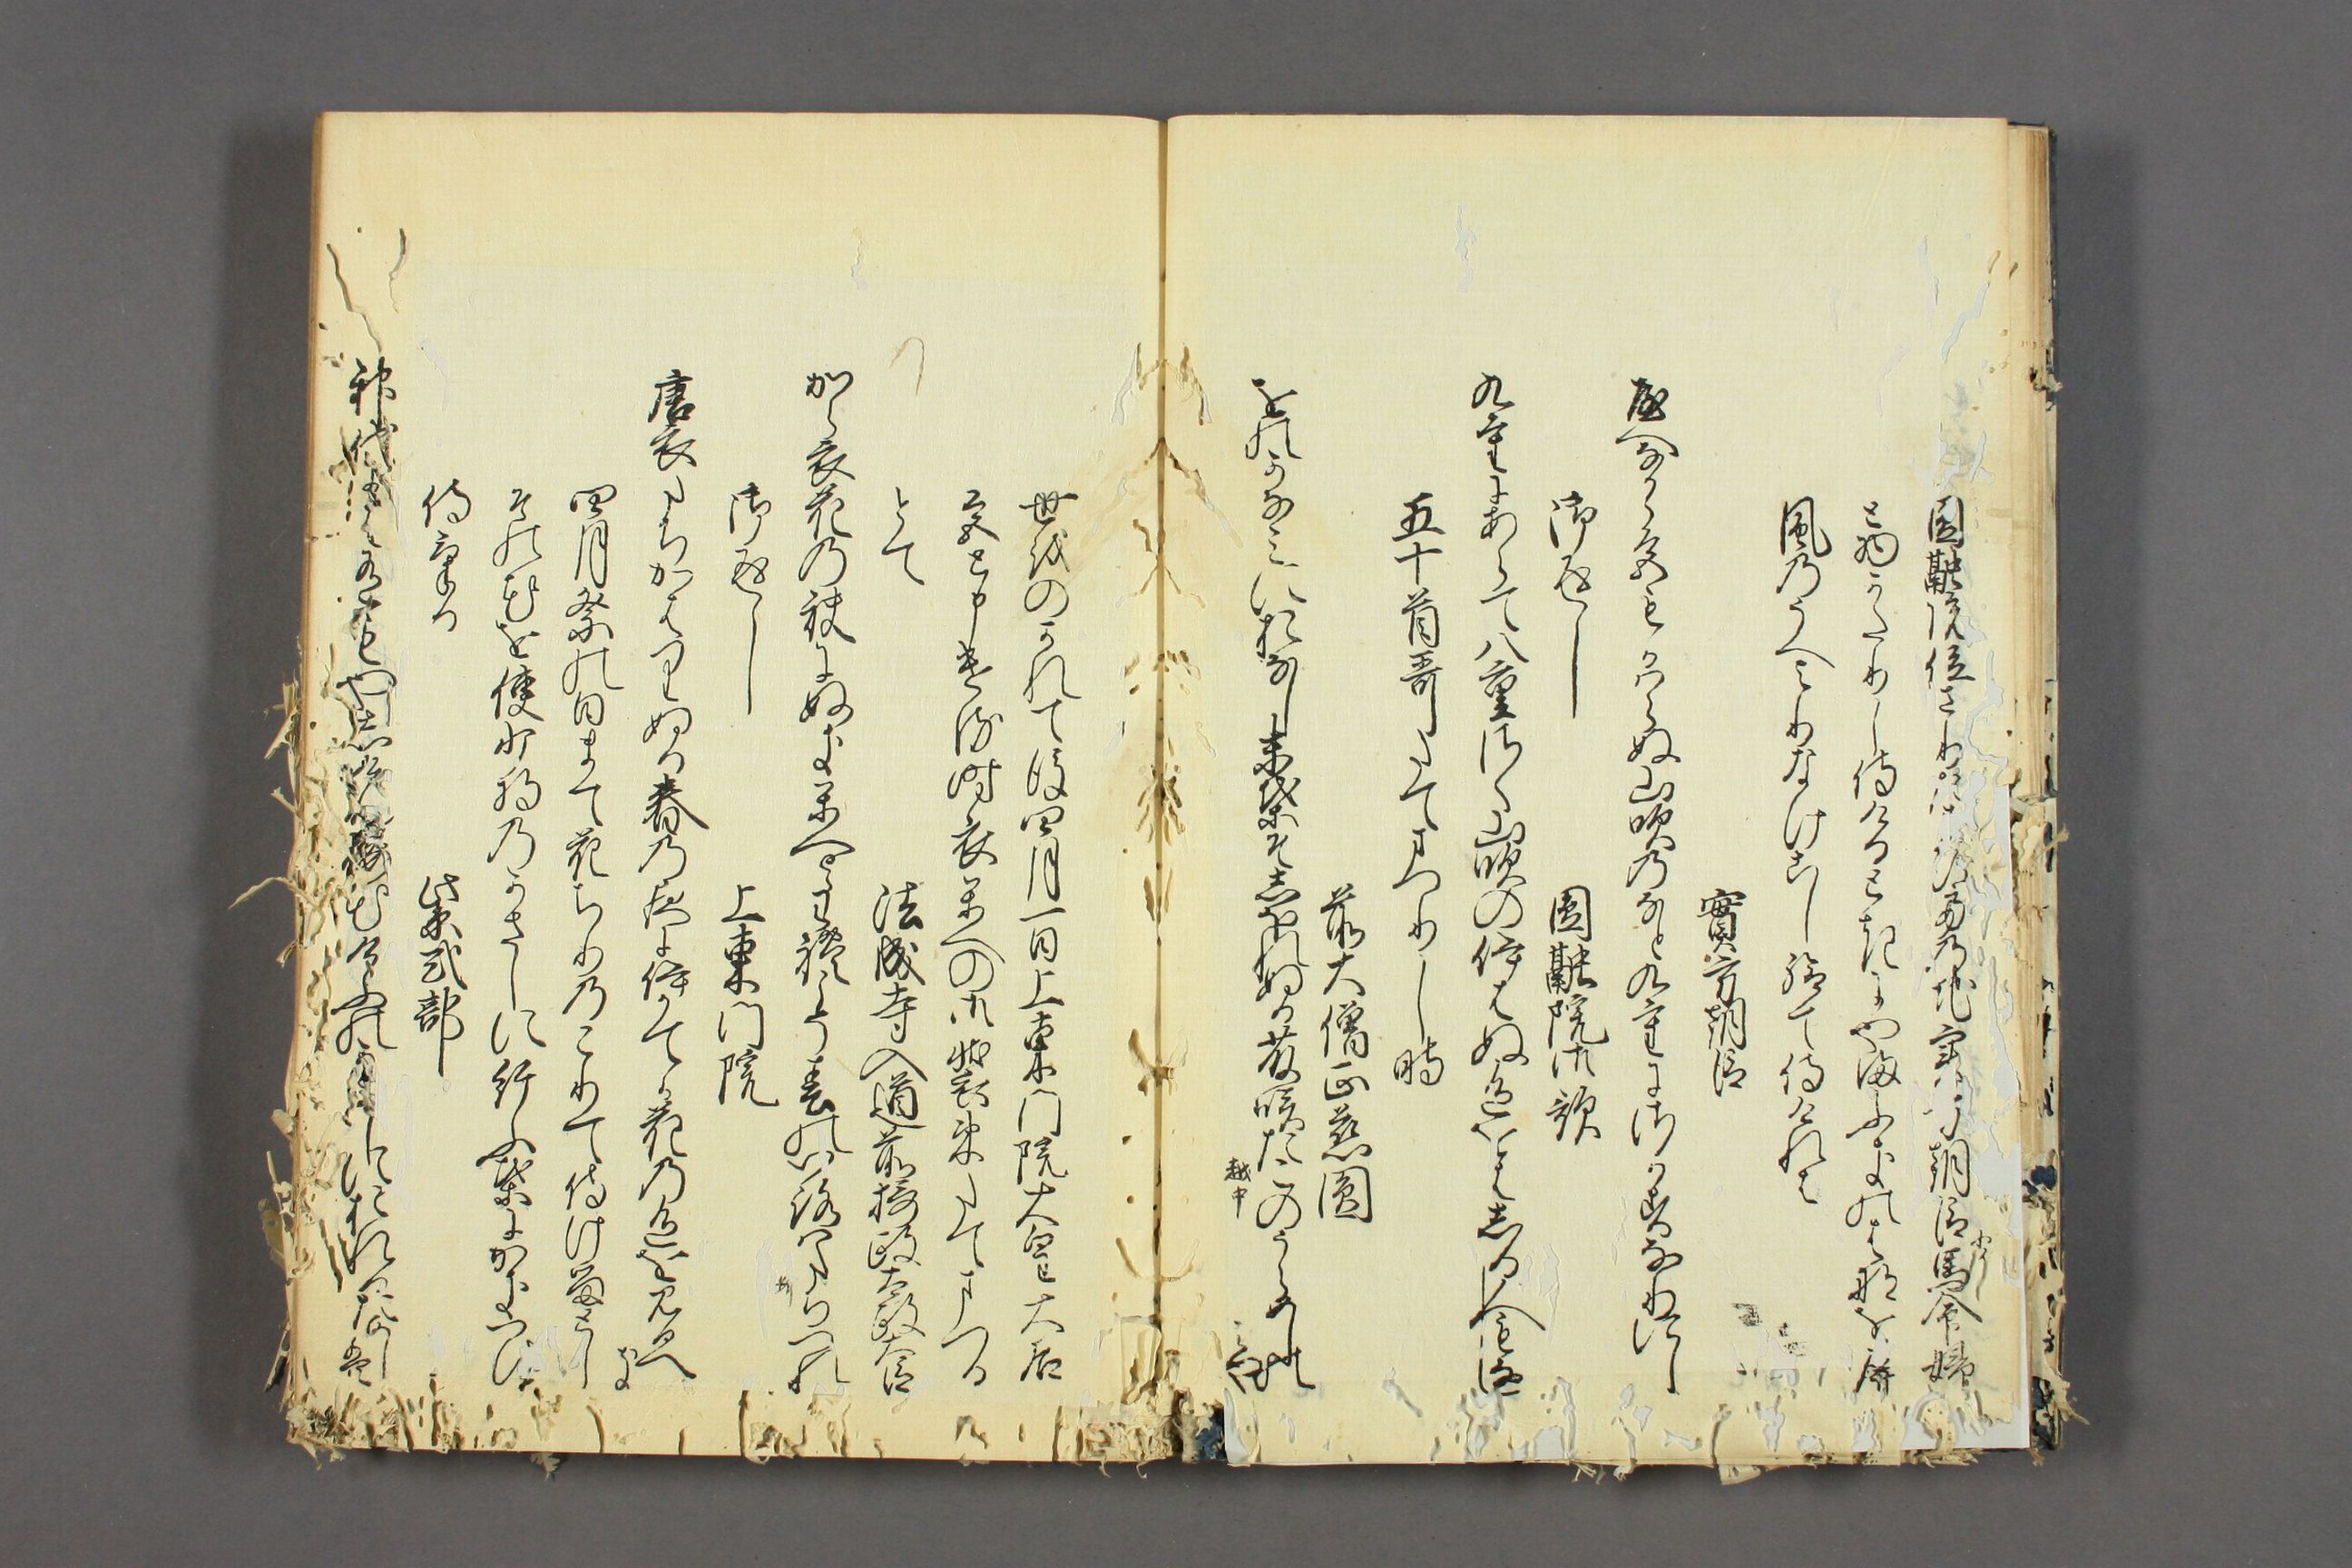 圓融院位さり給て後實方朝臣馬命婦
と物かたりし侍ける所に山ふきの花を屏
風のうへよりなけこし給て侍けれは
實方朝臣
八重なから色もかはらぬ山吹のなと九重にさかすなりにし
御返し
圓融院御歌
九重にあらて八重さく山吹のいはぬ色をはしる人もなし
五十首哥たてまつりし時
前大僧正慈圓
をのか浪に同し末葉そしほれぬる藤咲たこのうらめしの身や
越中
世をのかれて後四月一日上東門院太皇太后
宮と申ける時衣かへの御装束たてまつる
とて
法成寺入道前摂政太政大臣
から衣花の袂にぬきかへよ我こそ春の色はたちつれ
御返し
上東門院
唐衣たちかはりぬる春の夜にいかてか花の色をみるへき
四月祭の日まて花ちりのこりて侍ける年その花を
使少将のかさしに給ふ葉にかきつけ
侍ける
紫式部
神代にはありもやしけん櫻花けふのかさしにおれるためしは